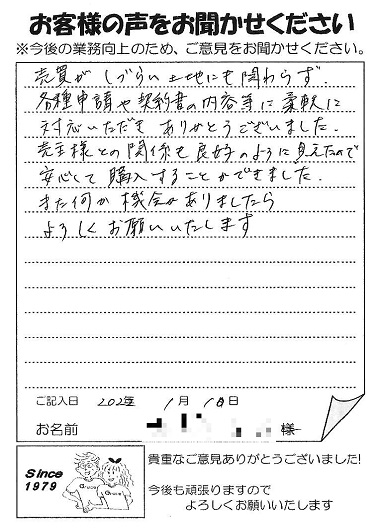 お客様の声をお聞かせください
※今後の業務向上のため、ご意見をお聞かせください。
売買がしづらい土地にも関わらず、
各種申請や契約書の内容等に柔軟に
対応いただき ありがとうございました。
売主様との関係も良好のように見えたので
安心して購入することができました。
また何か機会がありましたら
よろしくお願いいたします
ご記入日 202 年 1月 18日
お名前 様
Since
1979
Grace
Grace
貴重なご意見ありがとうございました!
今後も頑張りますので
よろしくお願いいたします